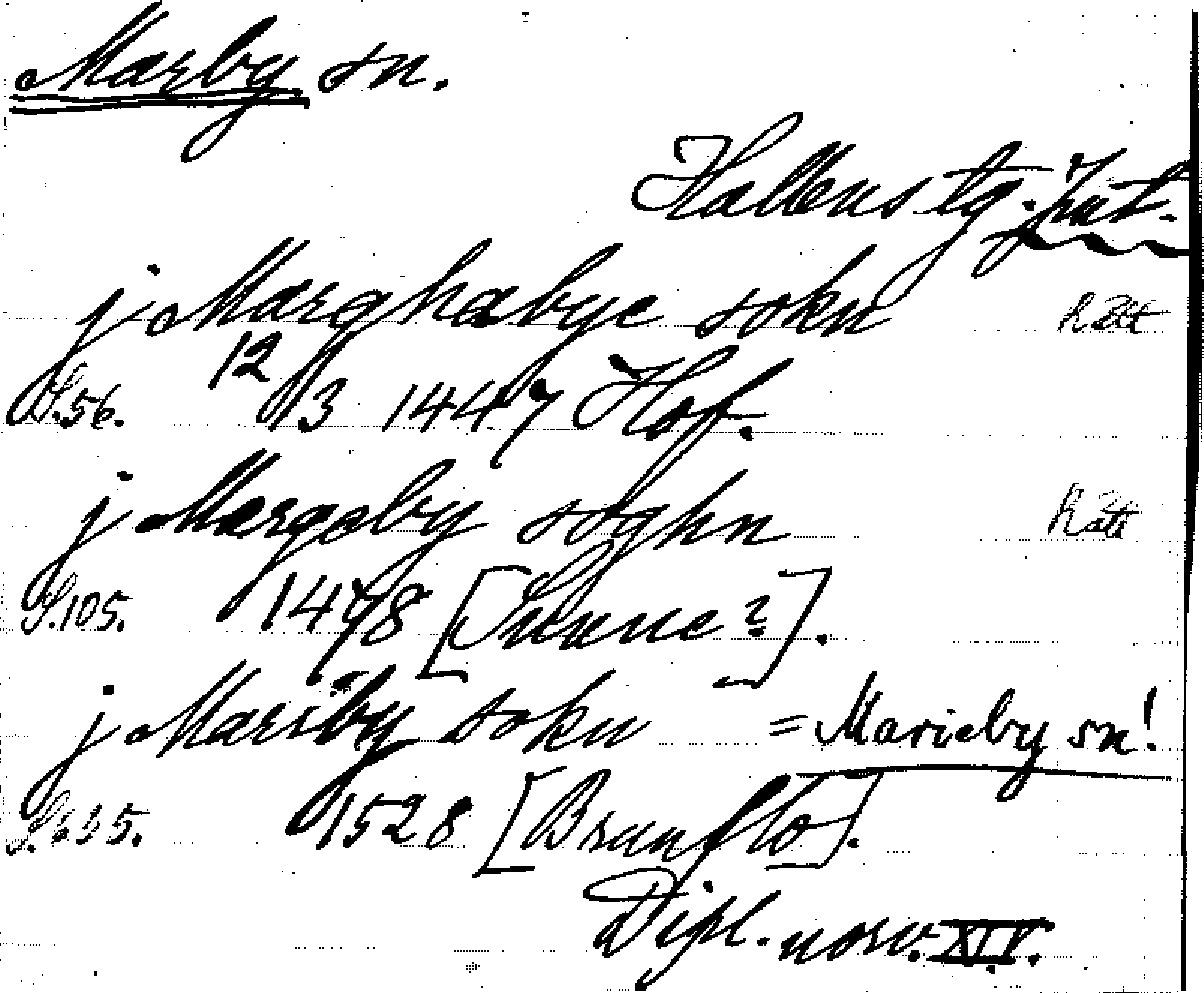 Marby sn.
Hallens tg. Jmt.
j Marghabye sokn Rätt
S. 56. 12/3 1447 Hof.
j Margaby soghn Rätt
S. 105. 1478 [Sunne?].
j Mariby sokn = Marieby sn!
1528 [Brunflo].
Dipl. norv. XIV.